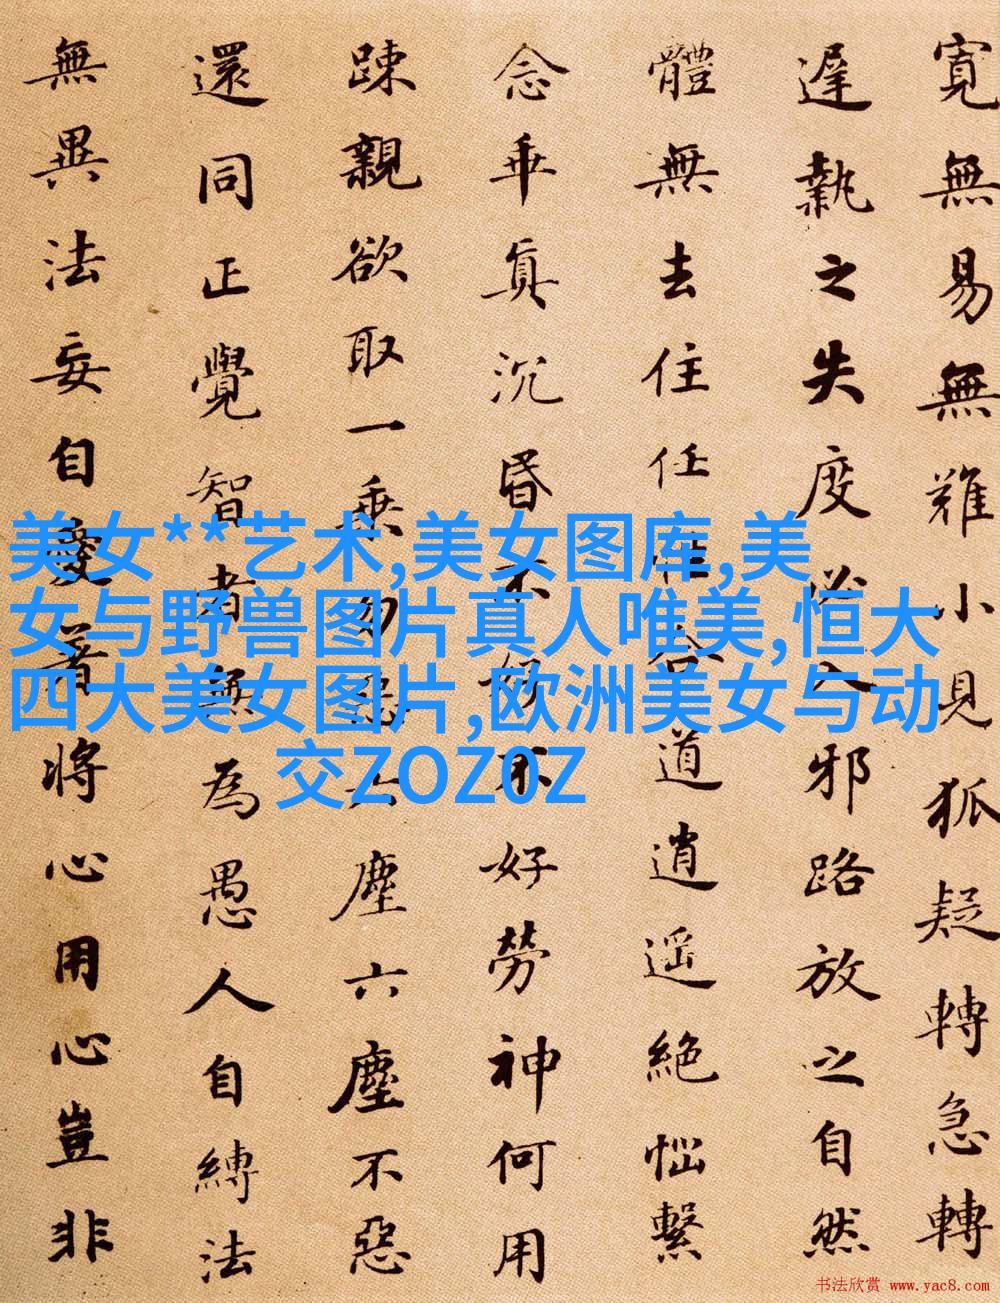 寬無易無難小見狐疑轉急轉
遲執之失度必入邪路放之自然
體無去住任性合道逍遥絕惱繫
念乖真沉昏不好不好勞神何用
踈親欲取一乘勿惡六塵六塵不惡
還同正覺智者無為愚人自縛法
無異法妄自愛著將心用心豈非
美女**艺术,美女图库,美
女与野兽图片真人唯美,恒大
四大美女图片,欧洲美女与动
交ZOZ0Z
书法欣赏 www.yac8.com